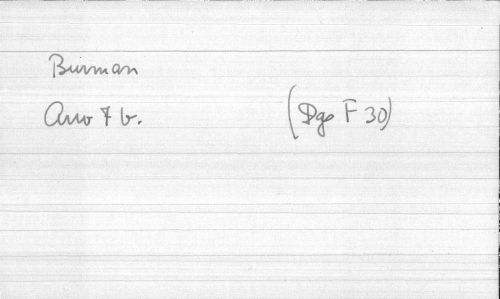 Burman
Arvo 7 b. (Dge F 30)